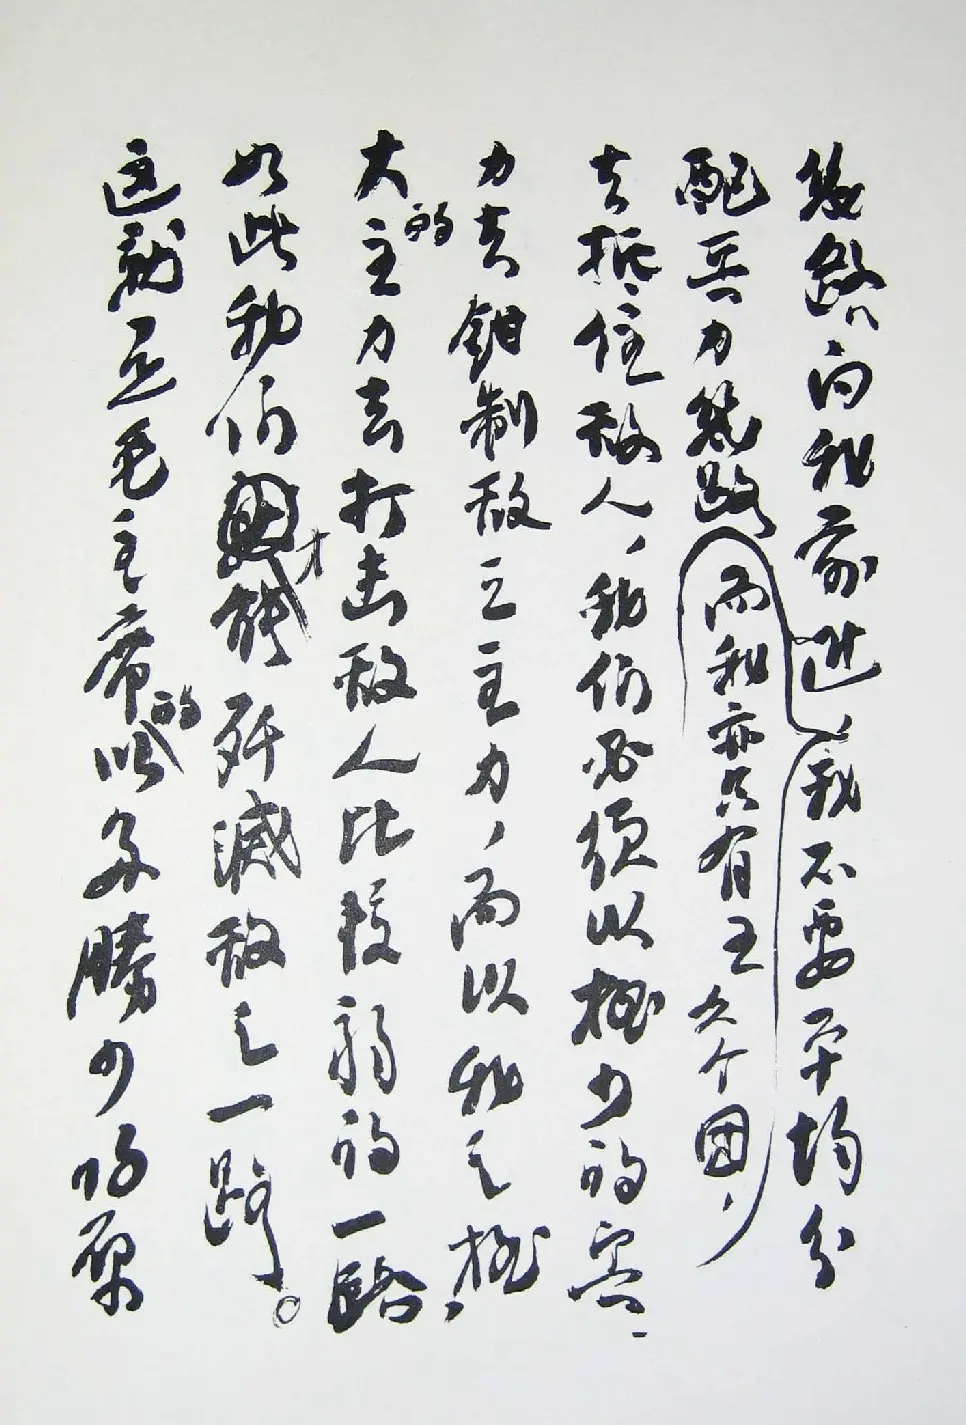 路向我前进，我不要平均分
配兵力几路而我亦只有五六个团，
去抵住敌人，我们必须以极少的兵
力去钳制敌之主力，而以我之极
大的主力去打击敌人比较弱的一路
如此我们才能歼灭敌之一路。
这就是毛主席的以多胜少的原